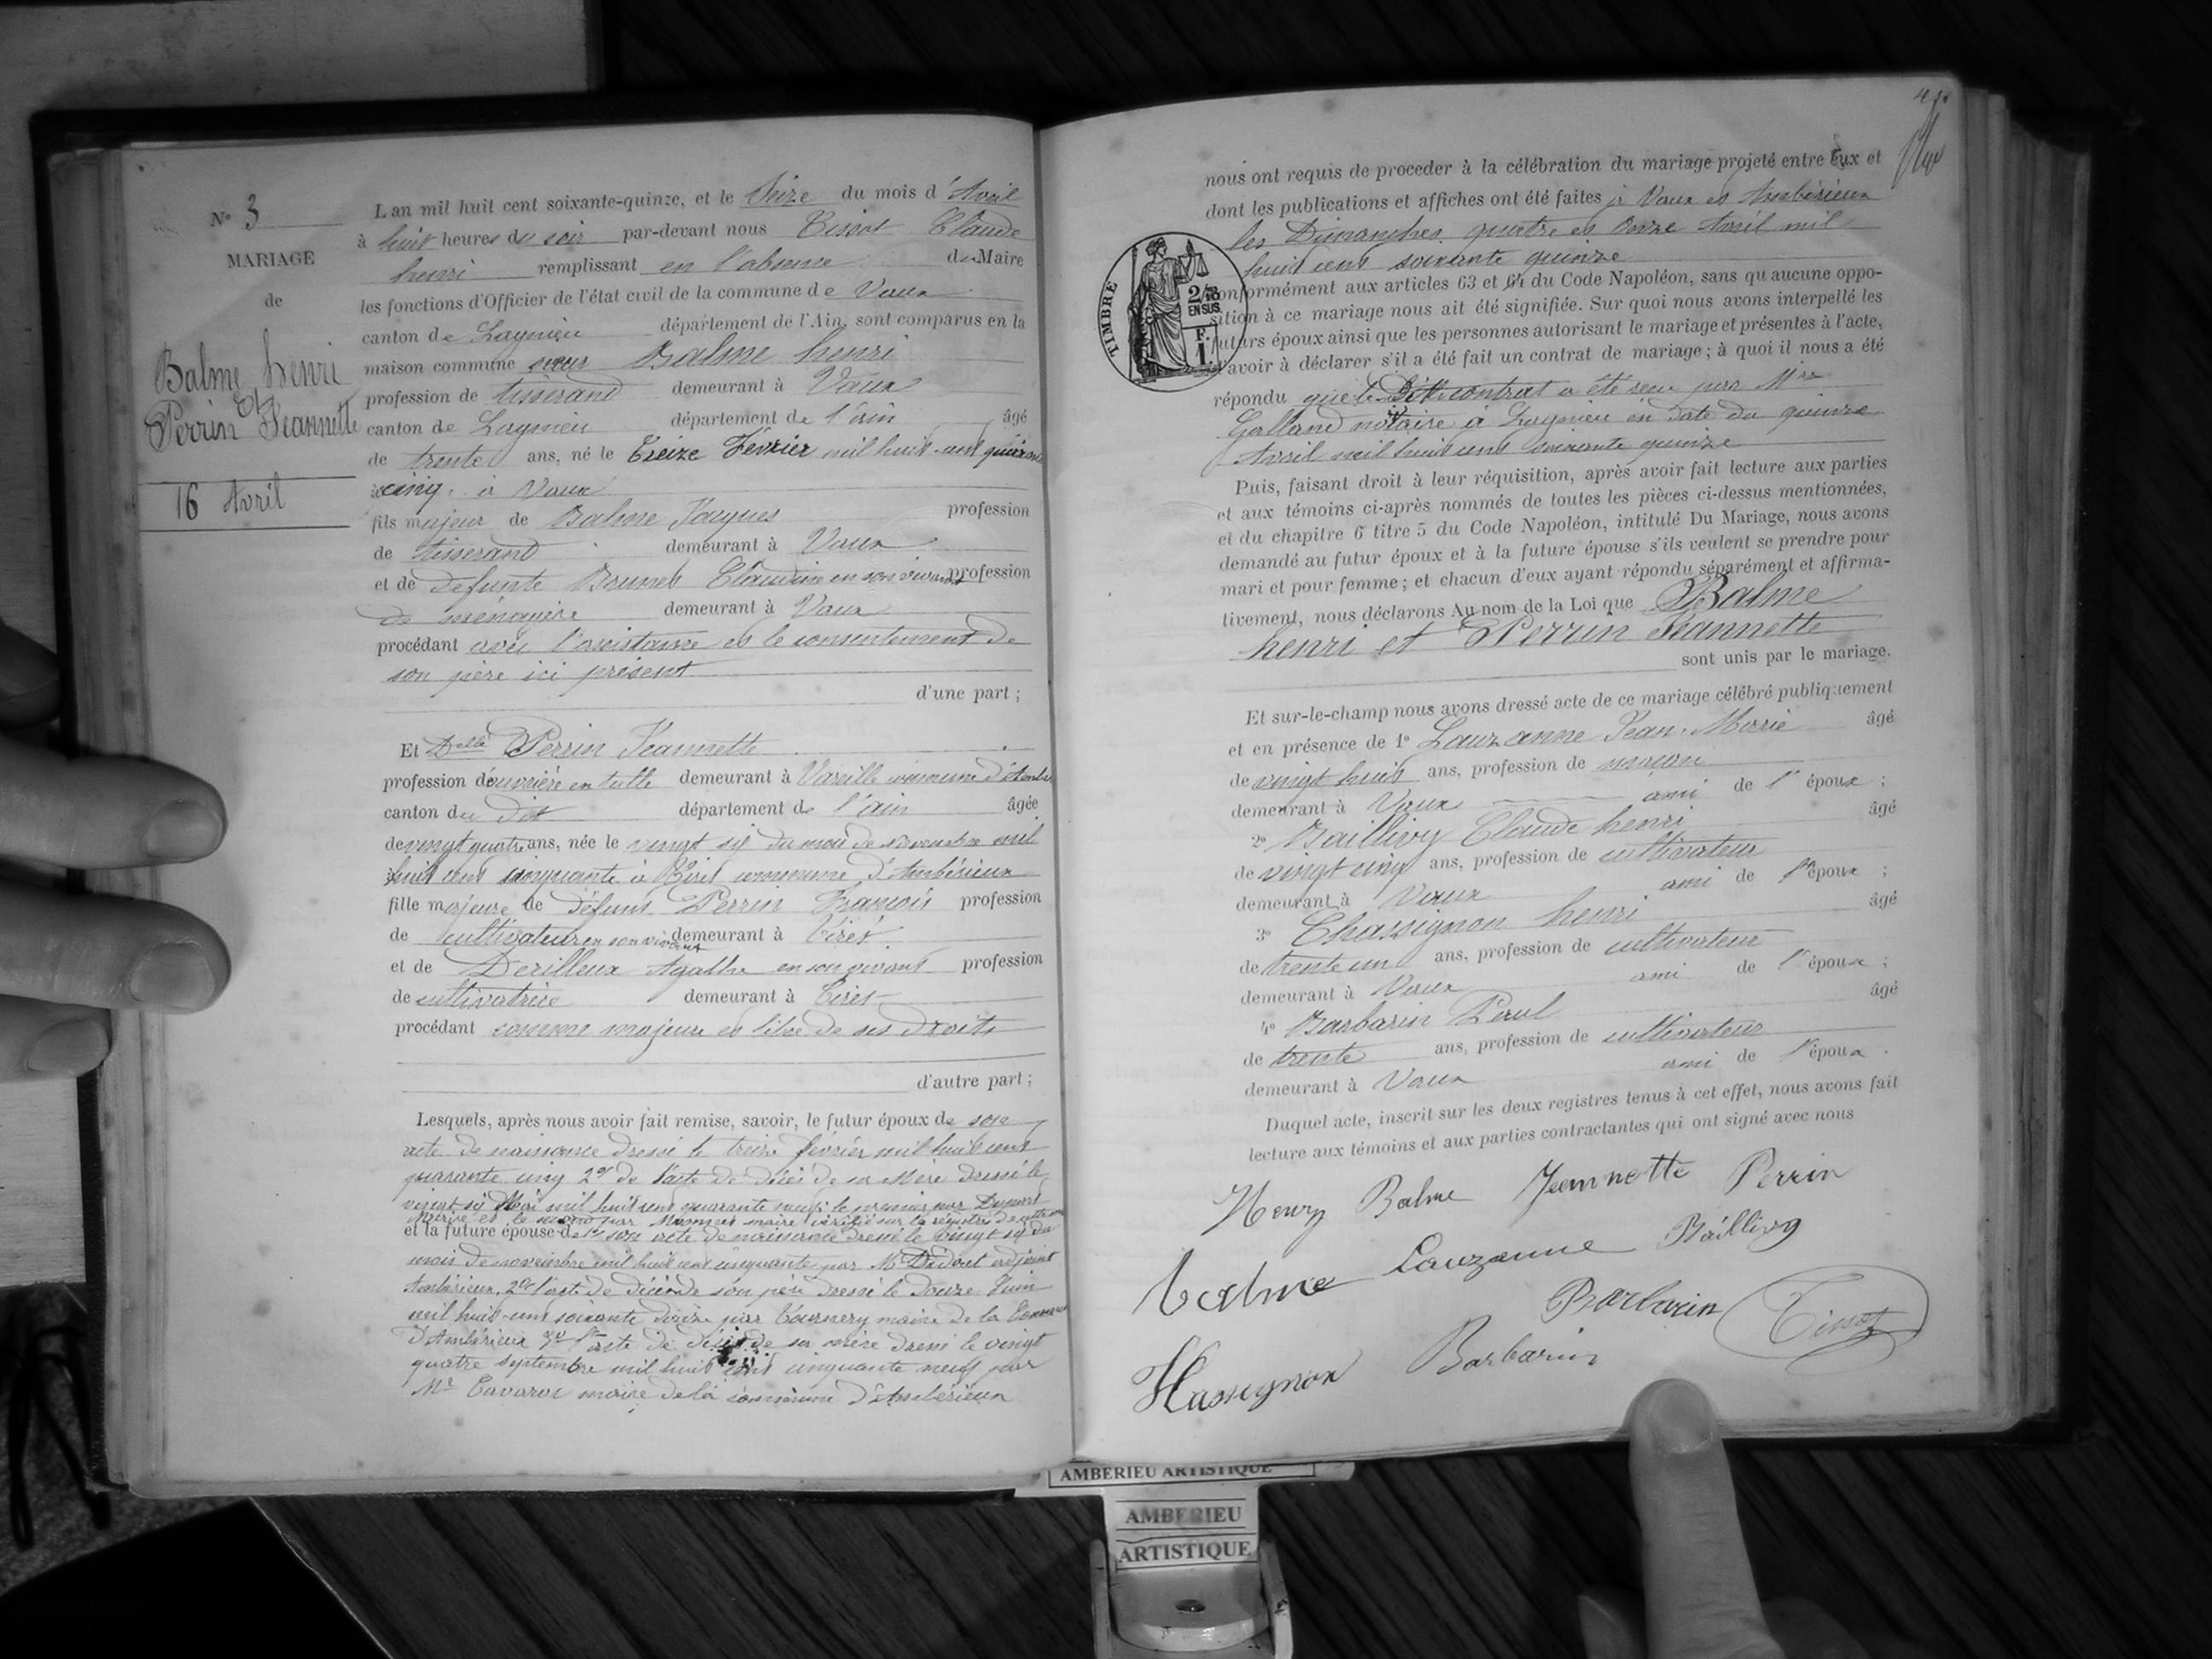 N° 3
MARIAGE
de
Balme henri
Et
Perrin Jeannette
16 Avril
L'an mil huit cent soixante-quinze, et le Seize du mois d'Avril
à huit heures du soir par-devant nous Tissot Claude
henri remplissant en l'absence du Maire
les fonctions d'Officier de l'état civil de la commune de Vaux
canton de Lagnieu département de l'Ain, sont comparus en la
maison commune sieur Balme henri
profession de tisserand demeurant à Vaux
canton de Lagnieu département de l'ain âgé
de trente ans, né le treize Février mil huit cent quarante
cinq à Vaux
fils majeur de Balme Jacques profession
de tisserand demeurant à Vaux
et de défunte Brunet Claudine en son vivant profession
de ménagère demeurant à Vaux
procédant avec l'assistance et le consentement de
son père ici présent
d'une part ;
Et Delle Perrin Jeannette
profession d'ouvrière en tulle demeurant à Vareille commune d'Amb
canton du dit département de l'ain âgée
de vingt quatre ans, née le vingt six du mois de novembre mil
huit cent cinquante à Tiret commune d'Ambérieux
fille majeure de défunt Perrin François profession
de cultivateur en son vivant demeurant à Tiret
et de Derilleux Agathe en son vivant profession
de cultivatrice demeurant à Tiret
procédant comme majeure et libre de ses droits
d'autre part ;
Lesquels, après nous avoir fait remise, savoir, le futur époux de son
acte de naissance dressé le treize février mil huit cent
quarante cinq 2° de l'acte de décès de sa Mère dressé le
vingt six Mai mil huit cent quarante neuf le premier par Dupont
Maire et le second par maire vérifié sur les régistres de cette
et la future épouse de 1° son acte de naissance dressé le vingt six du
mois de novembre mil huit cent cinquante par Mr Didout adjoint
Ambérieux, 2° l'acte de décès de son père dressé le douze Juin
mil huit cent soixante par Tournery maire de la Commune
d'Ambérieux 3° acte de décès de sa mère dressé le vingt
quatre septembre mil huit cent cinquante neuf par
Mr Cavarot maire de la commune d'Ambérieux
nous ont requis de proceder à la célébration du mariage projeté entre Eux et
dont les publications et affiches ont été faites à Vaux et Ambérieux
les Dimanches quatre et onze Avril mil
huit cent soixante quinze
conformément aux articles 63 et 64 du Code Napoléon, sans qu'aucune oppo-
sition à ce mariage nous ait été signifiée. Sur quoi nous avons interpellé les
futurs époux ainsi que les personnes autorisant le mariage et présentes à l'acte,
d'avoir à déclarer s'il a été fait un contrat de mariage ; à quoi il nous a été
répondu que le Dit contrat a été reçu par Me
Galland notaire à Lagnieu en date du quinze
Avril mil huit cent soixante quinze
Puis, faisant droit à leur réquisition, après avoir fait lecture aux parties
et aux témoins ci-après nommés de toutes les pièces ci-dessus mentionnées,
et du chapitre 6 titre 5 du Code Napoléon, intitulé Du Mariage, nous avons
demandé au futur époux et à la future épouse s'ils veulent se prendre pour
mari et pour femme ; et chacun d'eux ayant répondu séparément et affirma-
tivement, nous déclarons Au nom de la Loi que Balme
henri et Perrin Jeannette
sont unis par le mariage.
Et sur-le-champ nous avons dressé acte de ce mariage célébré publiquement
et en présence de 1° Lauzanne Jean-Marie âgé
de vingt huit ans, profession de maçon
demeurant à Vaux ami de l'époux ;
2° Baillivy Claude henri âgé
de vingt cinq ans, profession de cultivateur
demeurant à Vaux ami de l'époux ;
3° Chassignon henri âgé
de trente un ans, profession de cultivateur
demeurant à Vaux ami de l'époux ;
4° Barbarin Paul âgé
de trente ans, profession de cultivateur
demeurant à Vaux ami de l'époux.
Duquel acte, inscrit sur les deux registres tenus à cet effet, nous avons fait
lecture aux témoins et aux parties contractantes qui ont signé avec nous
Henry Balme Jeannette Perrin
Balme Lauzanne Baillivy
Barbarin Tissot
Hassignon Barbarin
TIMBRE
2/10
EN SUS
F.
1.
AMBERIEU ARTISTIQUE
AMBERIEU
ARTISTIQUE